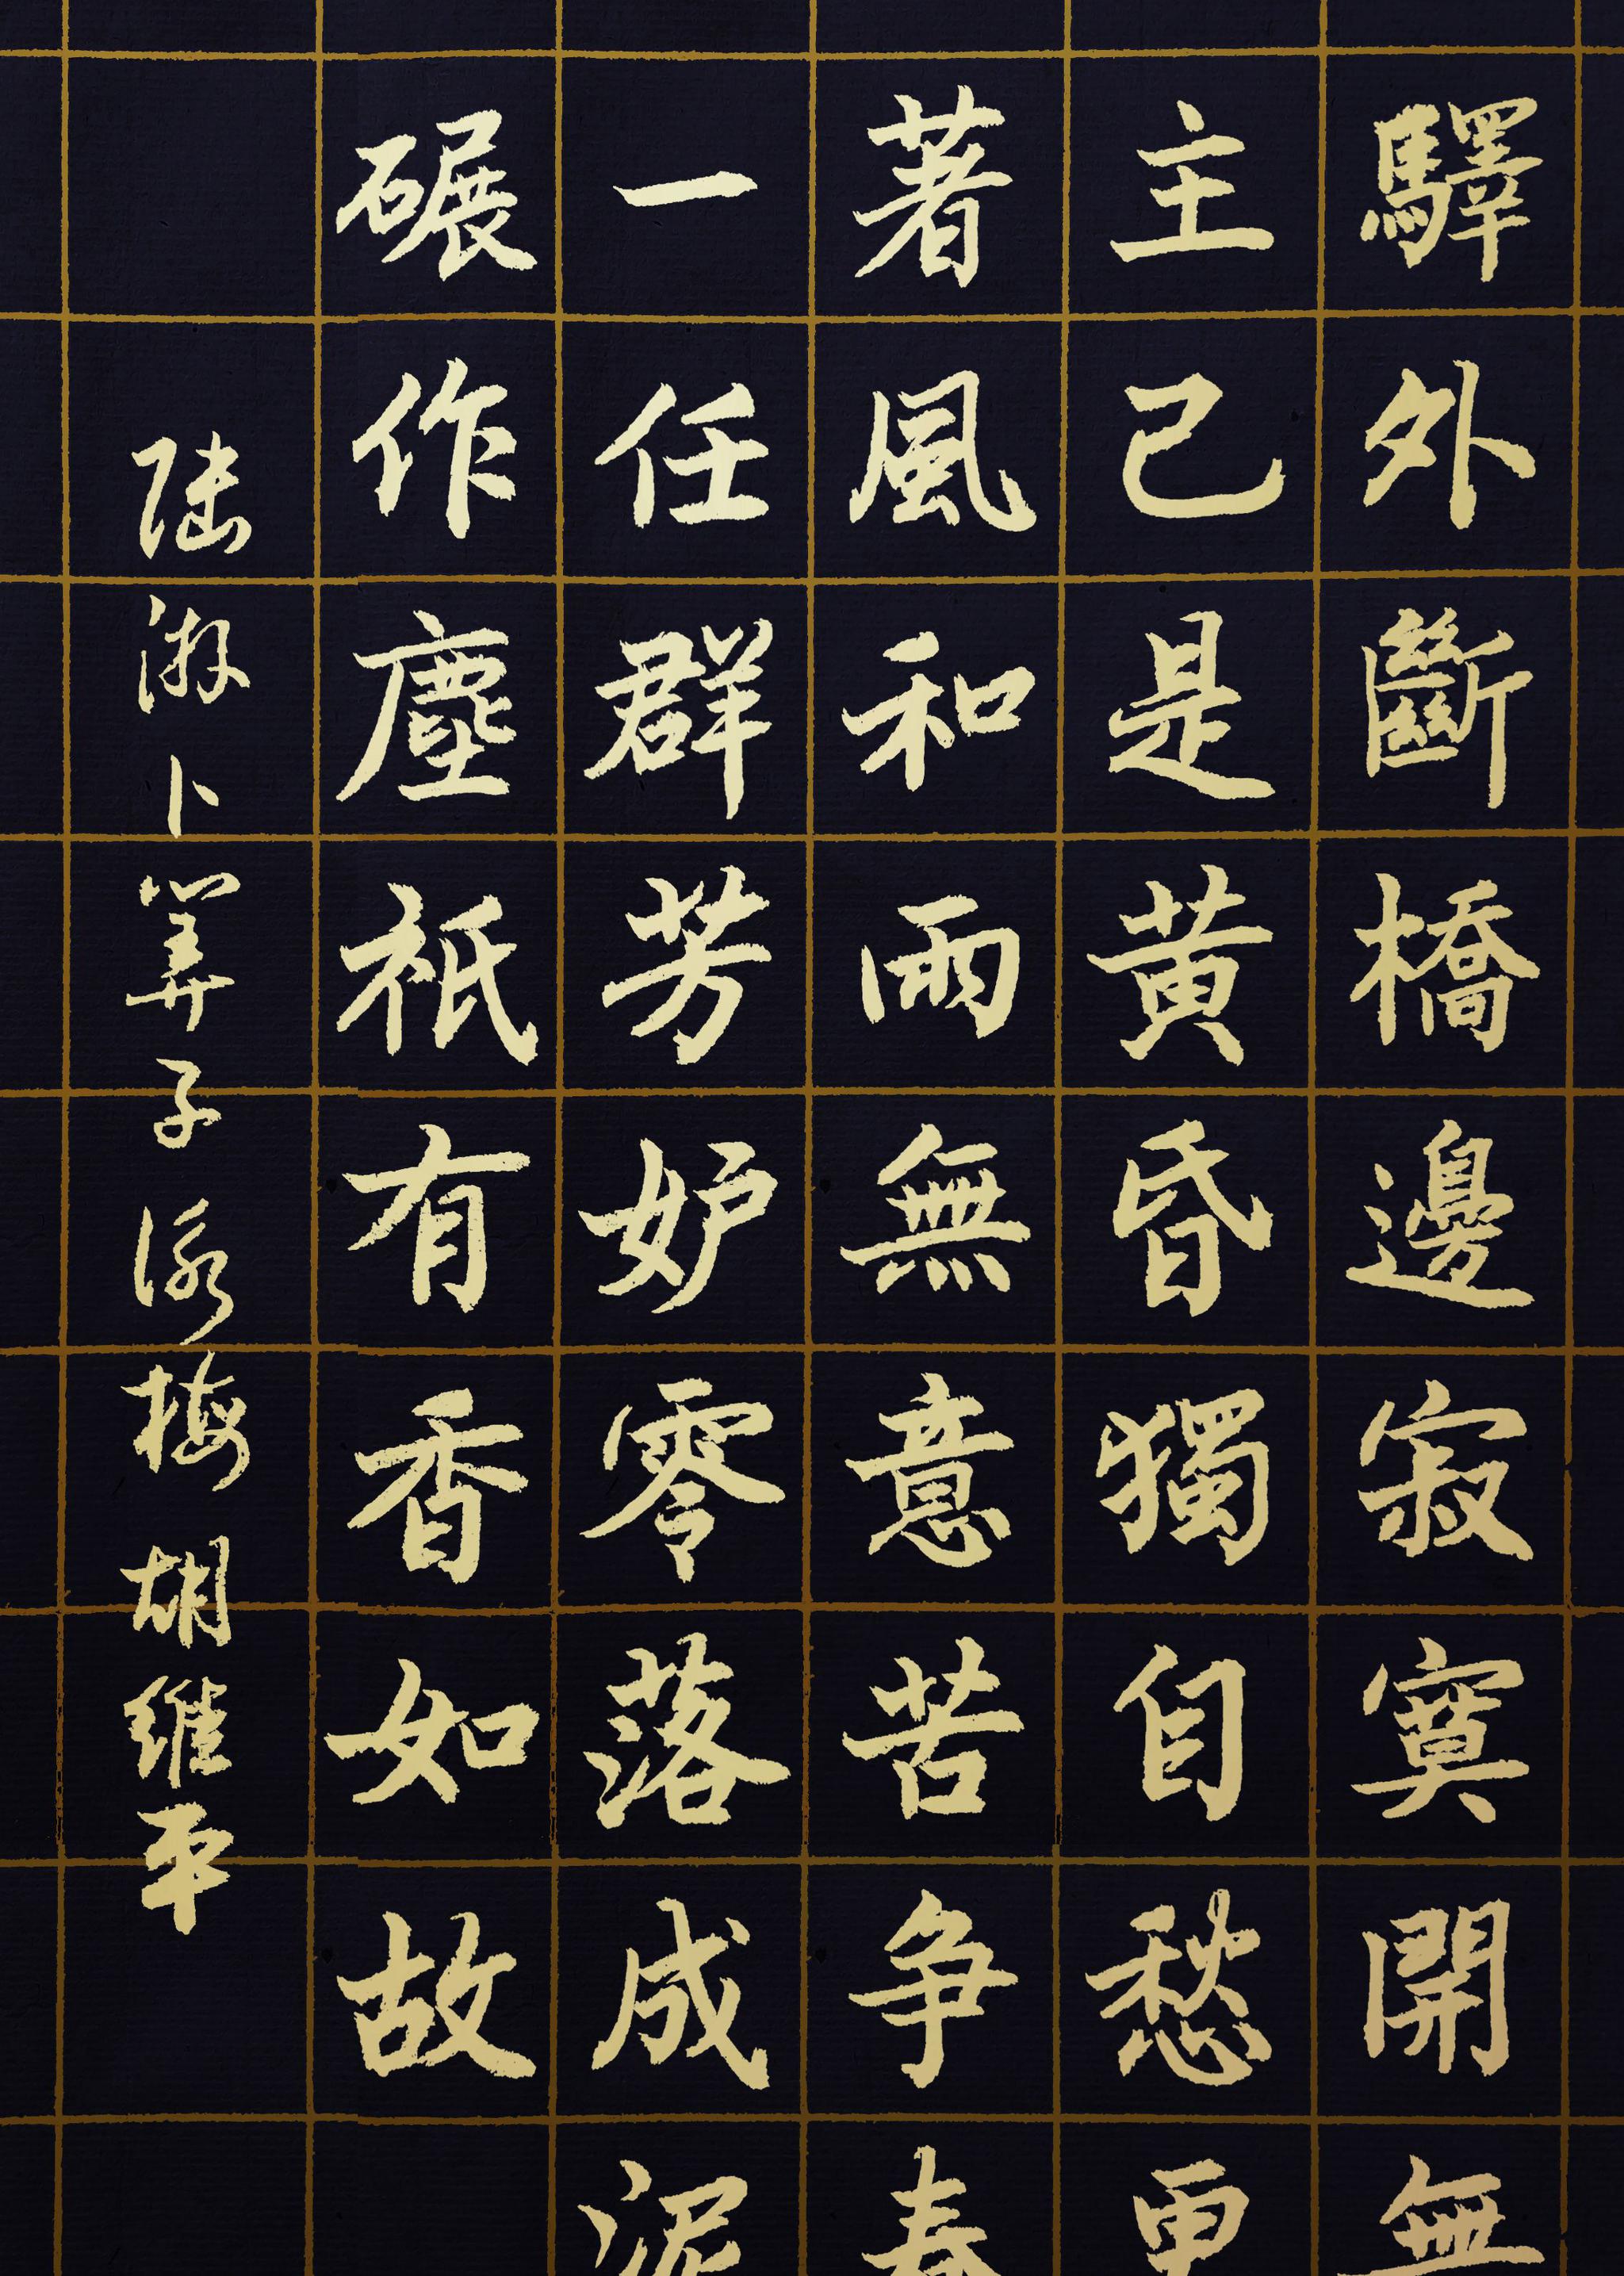 驛外斷橋邊寂寞開無
主已是黄昏獨自愁更
著風和雨無意苦争春
一任群芳妒零落成泥
碾作塵祇有香如故
陸游卜筭子詠梅 胡維平